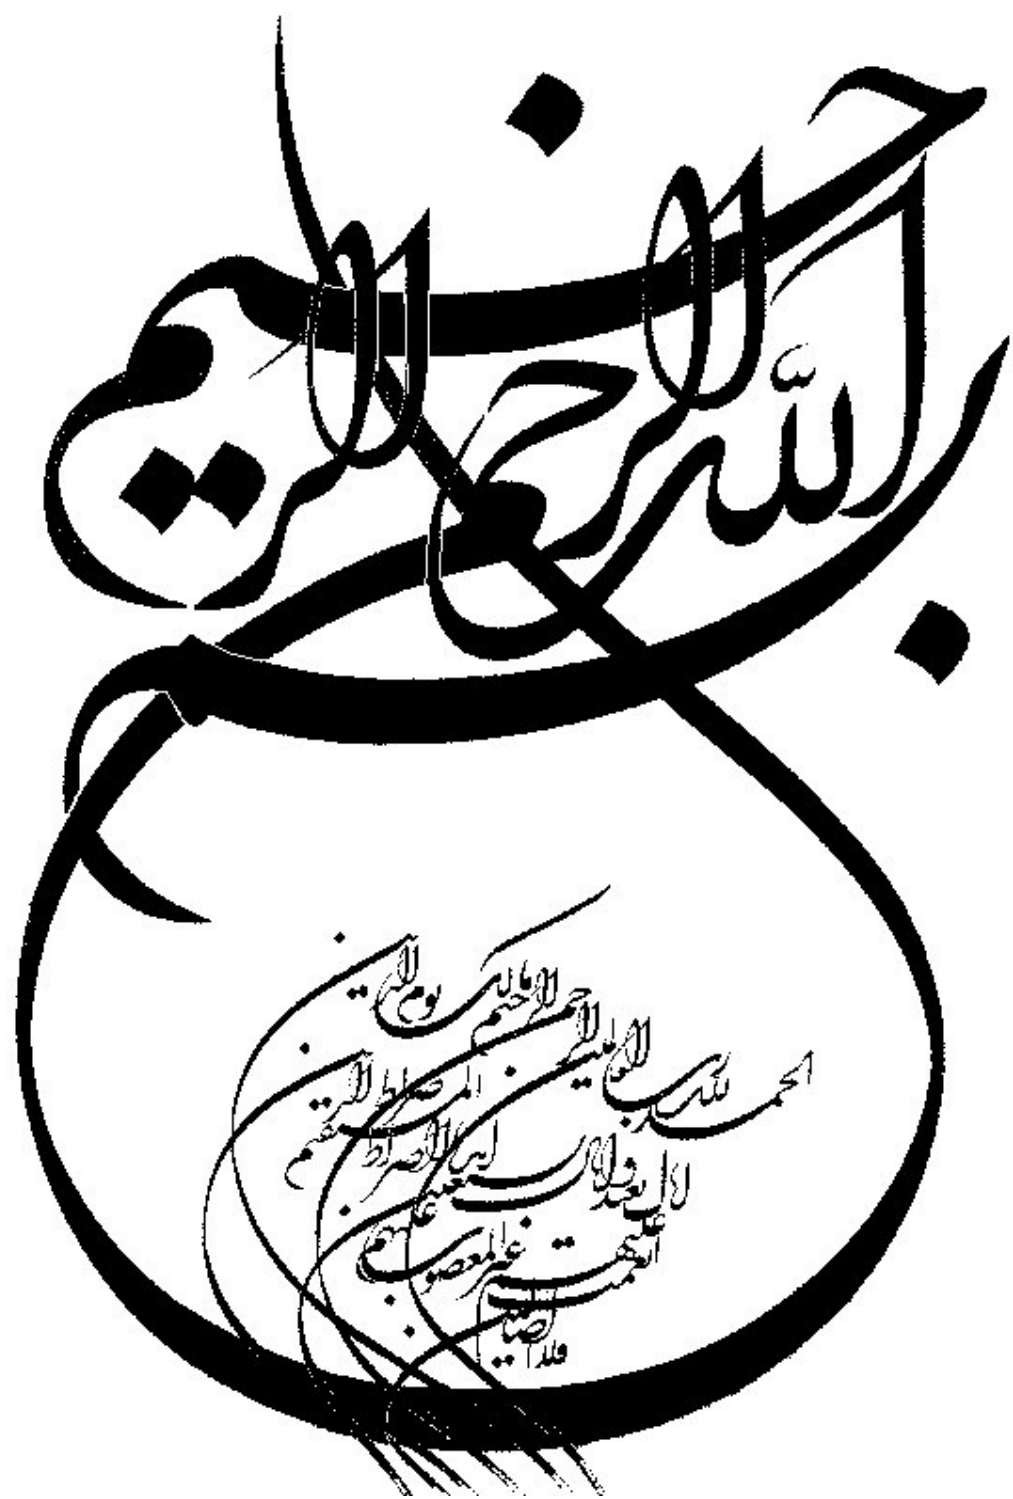 بسم الله الرحمن الرحيم
الحمد لله رب العالمين
الرحمن الرحيم مالك يوم الدين
اياك نعبد و اياك نستعين
اهدنا الصراط المستقيم صراط الذين
انعمت عليهم
غير المغضوب عليهم
ولا الضالين